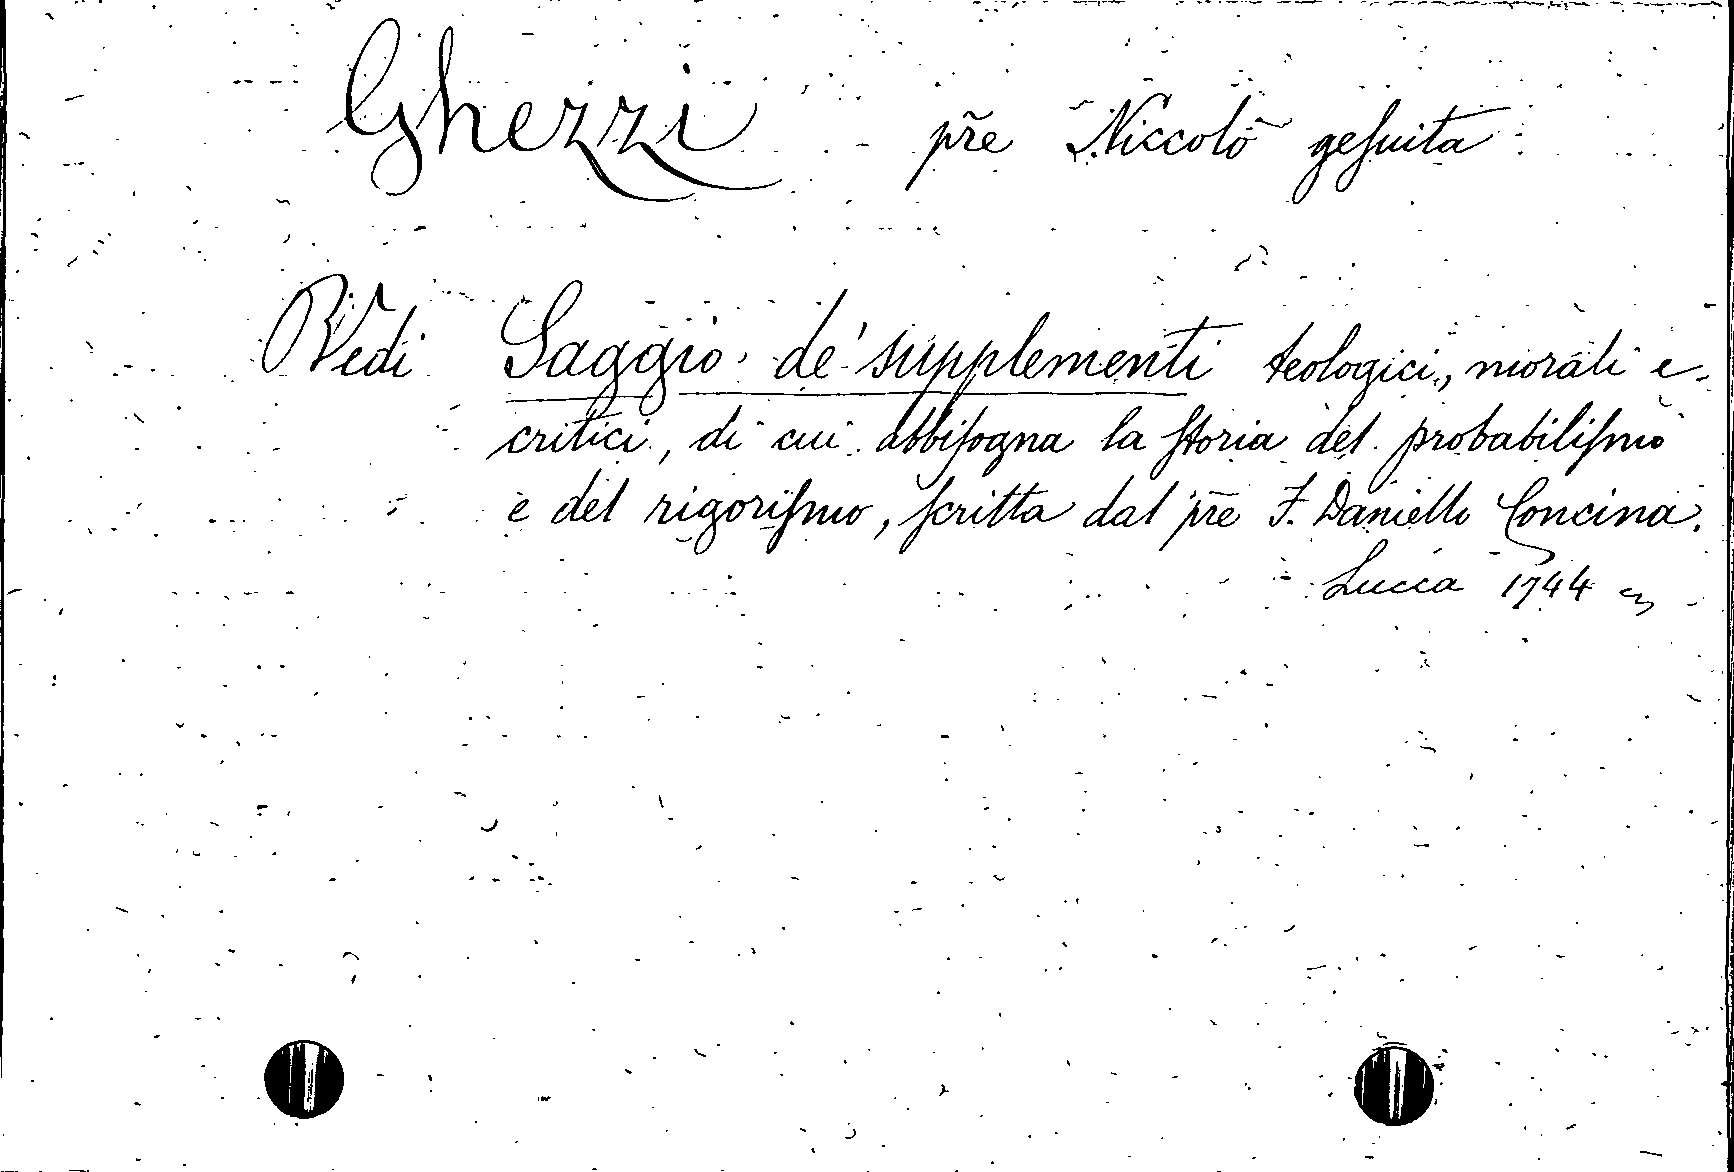 Ghezzi pr̃e Niccolò geſuita
Vedi Saggio de' supplementi teologici, morali e
critici, di cui abbiſogna la ſtoria del probabiliſmo
e del rigoriſmo, ſcritta dal pr̃e F. Daniello Concina.
Lucca 1744